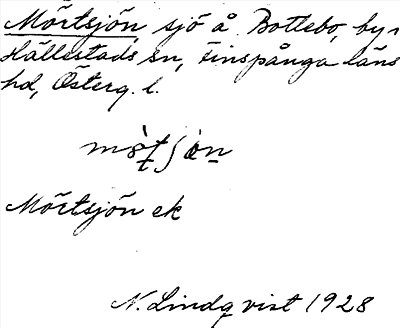 Mörtsjön sjö å Botlebo, by i
Hällestads sn, Finspånga läns
hd, Österg. l.
Mörtsjön ek
N. Lindqvist 1928